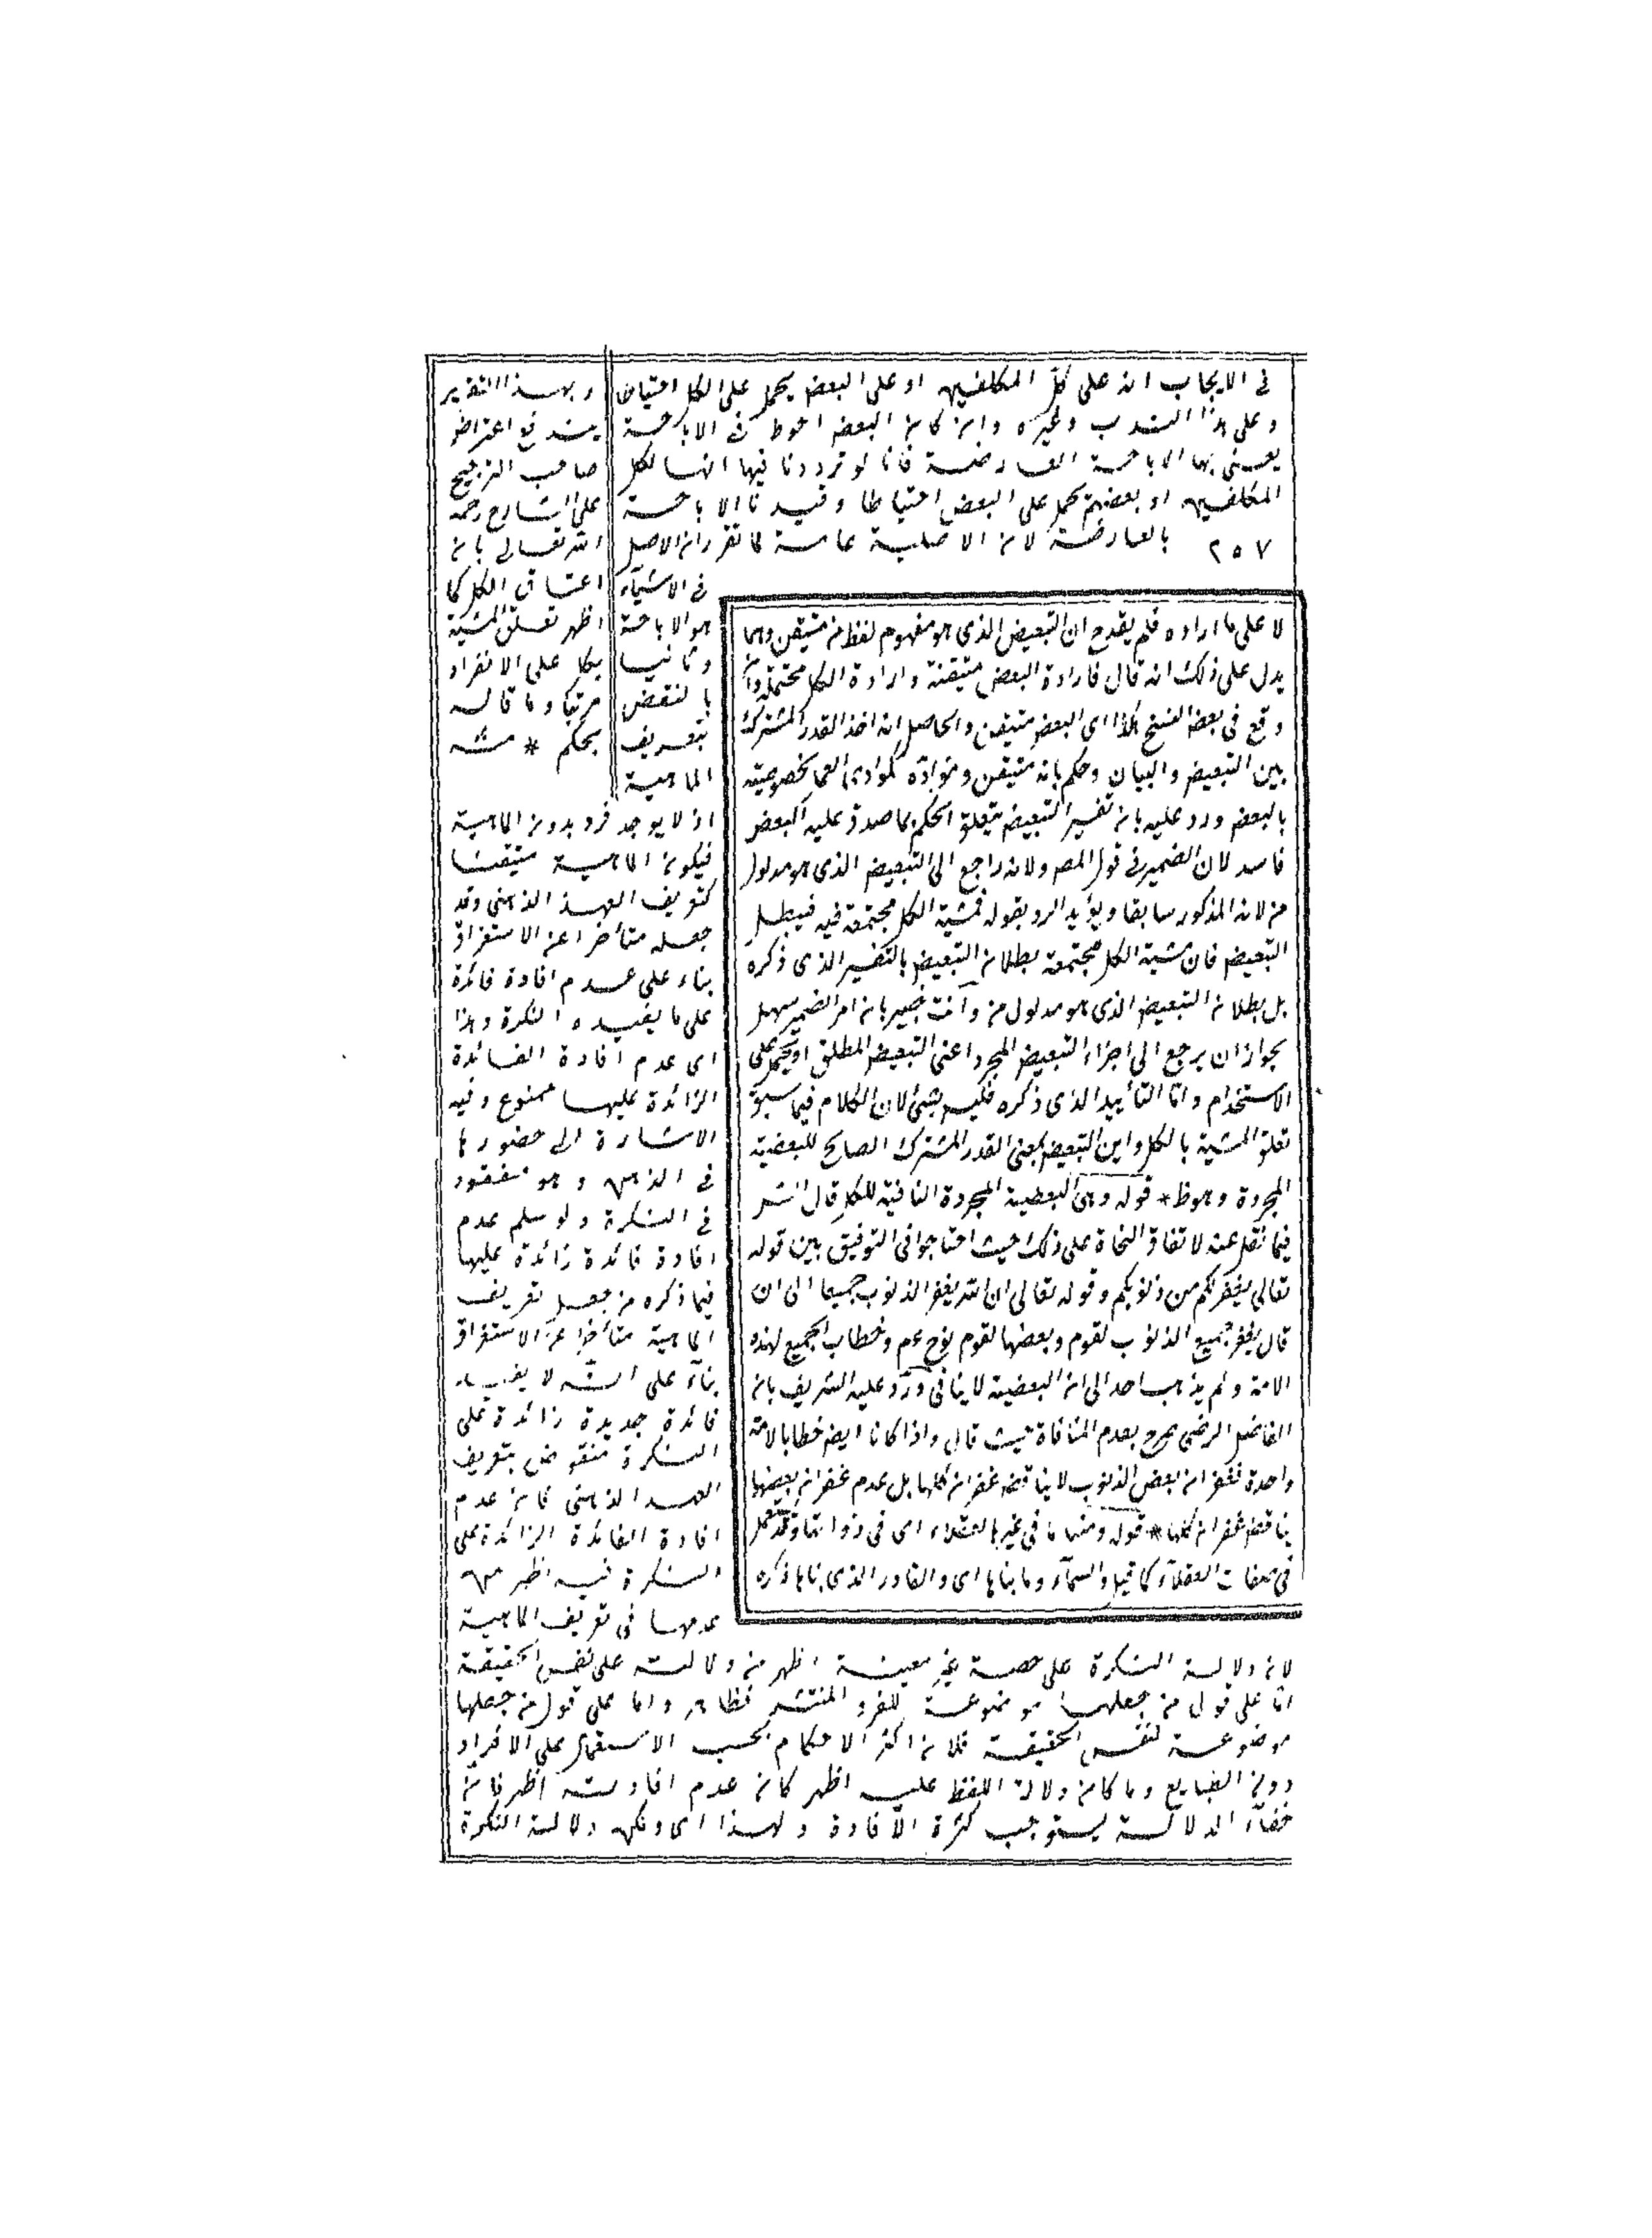 في الايجاب انه على كل المكلفين او على البعض يحمل على الكل احتياطا
وعلى هذا الندب وغيره وان كان البعض احوط في الاباحة
يعني بها الاباحة العارضة فانا لو ترددنا فيها انها لكل
المكلفين او بعضهم يحمل على البعض احتياطا وقيدنا الاباحة
٢٥٧ بالعارضة لان الاصلية عامة لما تقرر ان الاصل
في الاشيآء
هو الاباحة
وثانيا
بالنقض
بتعريف
الماهية
اذ لا يوجد فرد بدون الماهية
فيكون الماهية متيقنا
كتعريف العهد الذهنى وقد
جعله متأخرا عن الاستغراق
بناء على عدم افادة فائدة
على ما يفيده النكرة وهذا
اى عدم افادة الفائدة
الزائدة عليها ممنوع وفيه
الاشارة الى حضورها
في الذهن وهو مفقود
في النكرة ولو سلم عدم
افادة فائدة زائدة عليها
فيما ذكره من جعل تعريف
الماهية متأخرا عن الاستغراق
بنآء على انه لا يفيد
فائدة جديدة زائدة على
النكرة منقوض بتعريف
العهد الذهنى فان عدم
افادة الفائدة الزائدة على
النكرة فيه اظهر من
عدمها في تعريف الماهية
لان دلالة النكرة على حصة غير معينة اظهر من دلالته على نفس الحقيقة
اما على قول من جعلها موضوعة للفرد المنتشر فظاهر واما على قول من جعلها
موضوعة لنفس الحقيقة فلان اكثر الاحكام بحسب الاستعمال على الافراد
دون الطبايع وما كان دلالة اللفظ عليه اظهر كان عدم افادته اظهر فان
خفآء الدلالة يستوجب كثرة الافادة ولهذا اى ولكون دلالة النكرة
وبهذا التقرير
يندفع اعتراض
صاحب الترجيح
على الشارح رحمه
الله تعالى بان
اعتاق الكل كما
اظهر تعلق المشية
بكل على الانفراد
مرتبا وما قاله
بحكم * منه
لا على ما اراده فلم يقدح ان التبعيض الذى هو مفهوم لفظ من متيقن ومما
يدل على ذلك انه قال فارادة البعض متيقنة وارادة الكل محتملة وان
وقع في بعض النسخ هكذا اى البعض متيقن والحاصل انه اخذ القدر المشترك
بين التبعيض والبيان وحكم بانه متيقن
بالبعض ورد عليه بان تفسير التبعيض بتعلق الحكم بما صدق عليه البعض
فاسد لان الضمير في قول المصـ ولانه راجع الى التبعيض الذى هو مدلول
من لانه المذكور سابقا ويؤيد الرد بقوله فمشية الكل مجتمعة فيه فيبطل
التبعيض فان مشية الكل مجتمعة بطلان التبعيض بالتفسير الذى ذكره
بل بطلان التبعيض الذى هو مدلول من وانت خبير بان امر الضمير سهل
لجواز ان يرجع الى اجزاء التبعيض المجرد اعنى التبعيض المطلق او يحمل على
الاستخدام واما التأييد الذى ذكره فليس بشئ لان الكلام فيما سبق
تعلق المشية بالكل واين التبعيض بمعنى القدر المشترك الصالح للبعضية
المجردة وهو ظ * قوله وهى البعضية المجردة النافية للكل قال الشـ
فيما نقل عنه لاتفاق النحاة على ذلك حيث احتاجوا في التوفيق بين قوله
تعالى يغفر لكم من ذنوبكم وقوله تعالى ان الله يغفر الذنوب جميعا الى ان
قال يغفر جميع الذنوب لقوم وبعضها لقوم نوح عم وخطاب الجميع لهذه
الامة ولم يذهب احد الى ان البعضية لا ينافى ورد عليه الشريف بان
الفاضل الرضى صرح بعدم المنافاة حيث قال واذا كانا ايضا خطابا لامة
واحدة فغفران بعض الذنوب لا يناقض غفران كلها بل عدم غفران بعضها
يناقض غفران كلها * قوله ومنها ما في غير العقلاء اى في ذواتها وقد تستعمل
في صفات العقلآء كما قيل والسمآء وما بناها اى والقادر الذى بناها ذكره